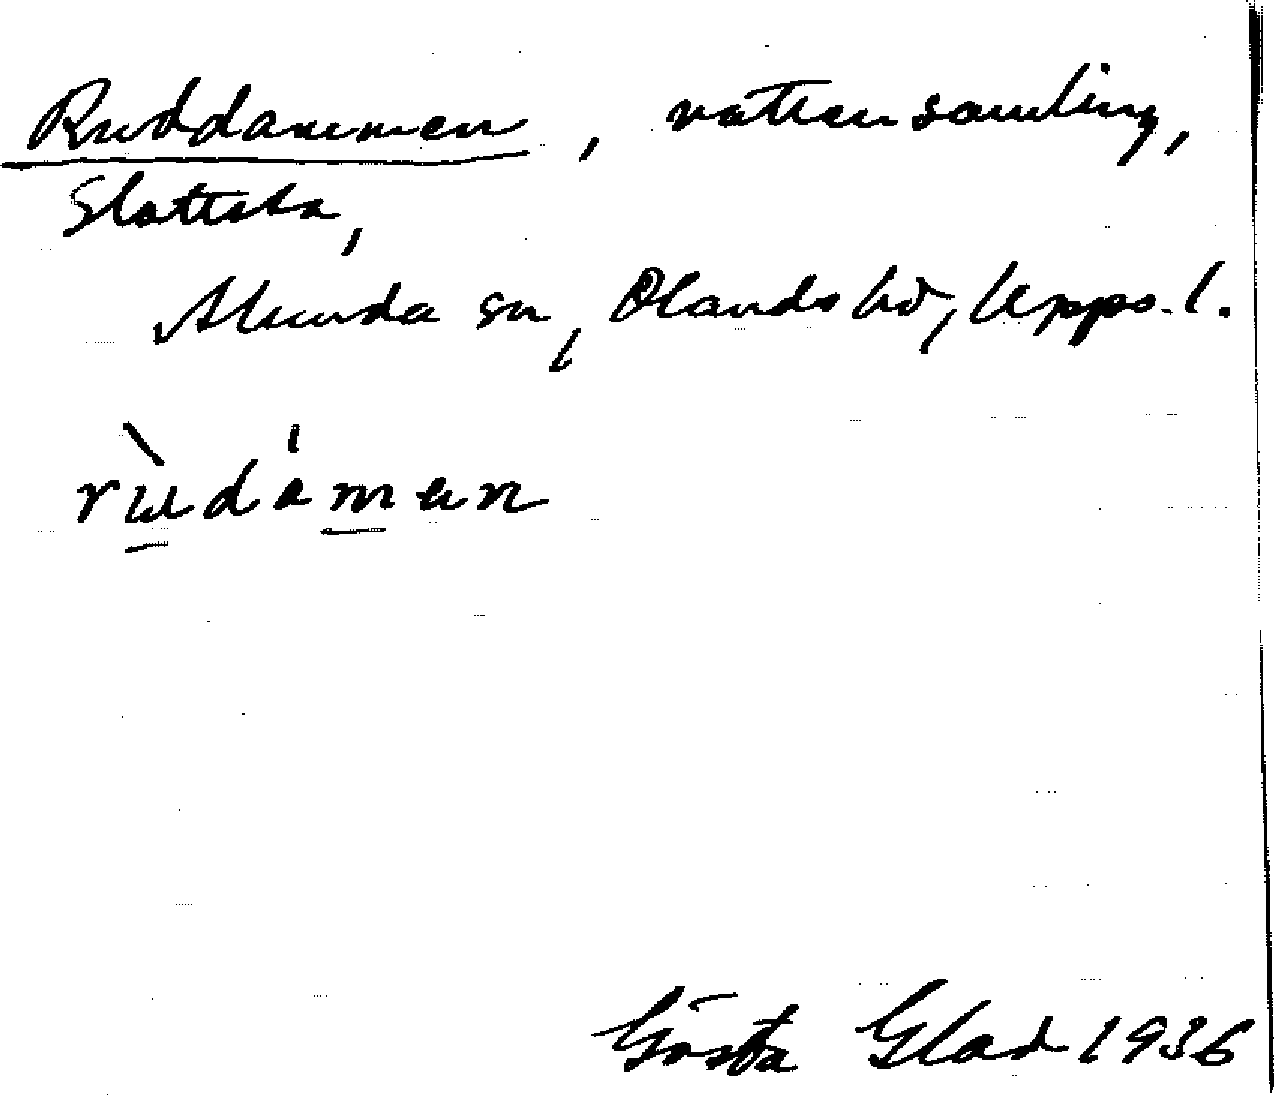 Ruddammen, vattensamling,
Slottska,
Alunda sn, Olands hd, Upps. l.
Gösta Glad 1936